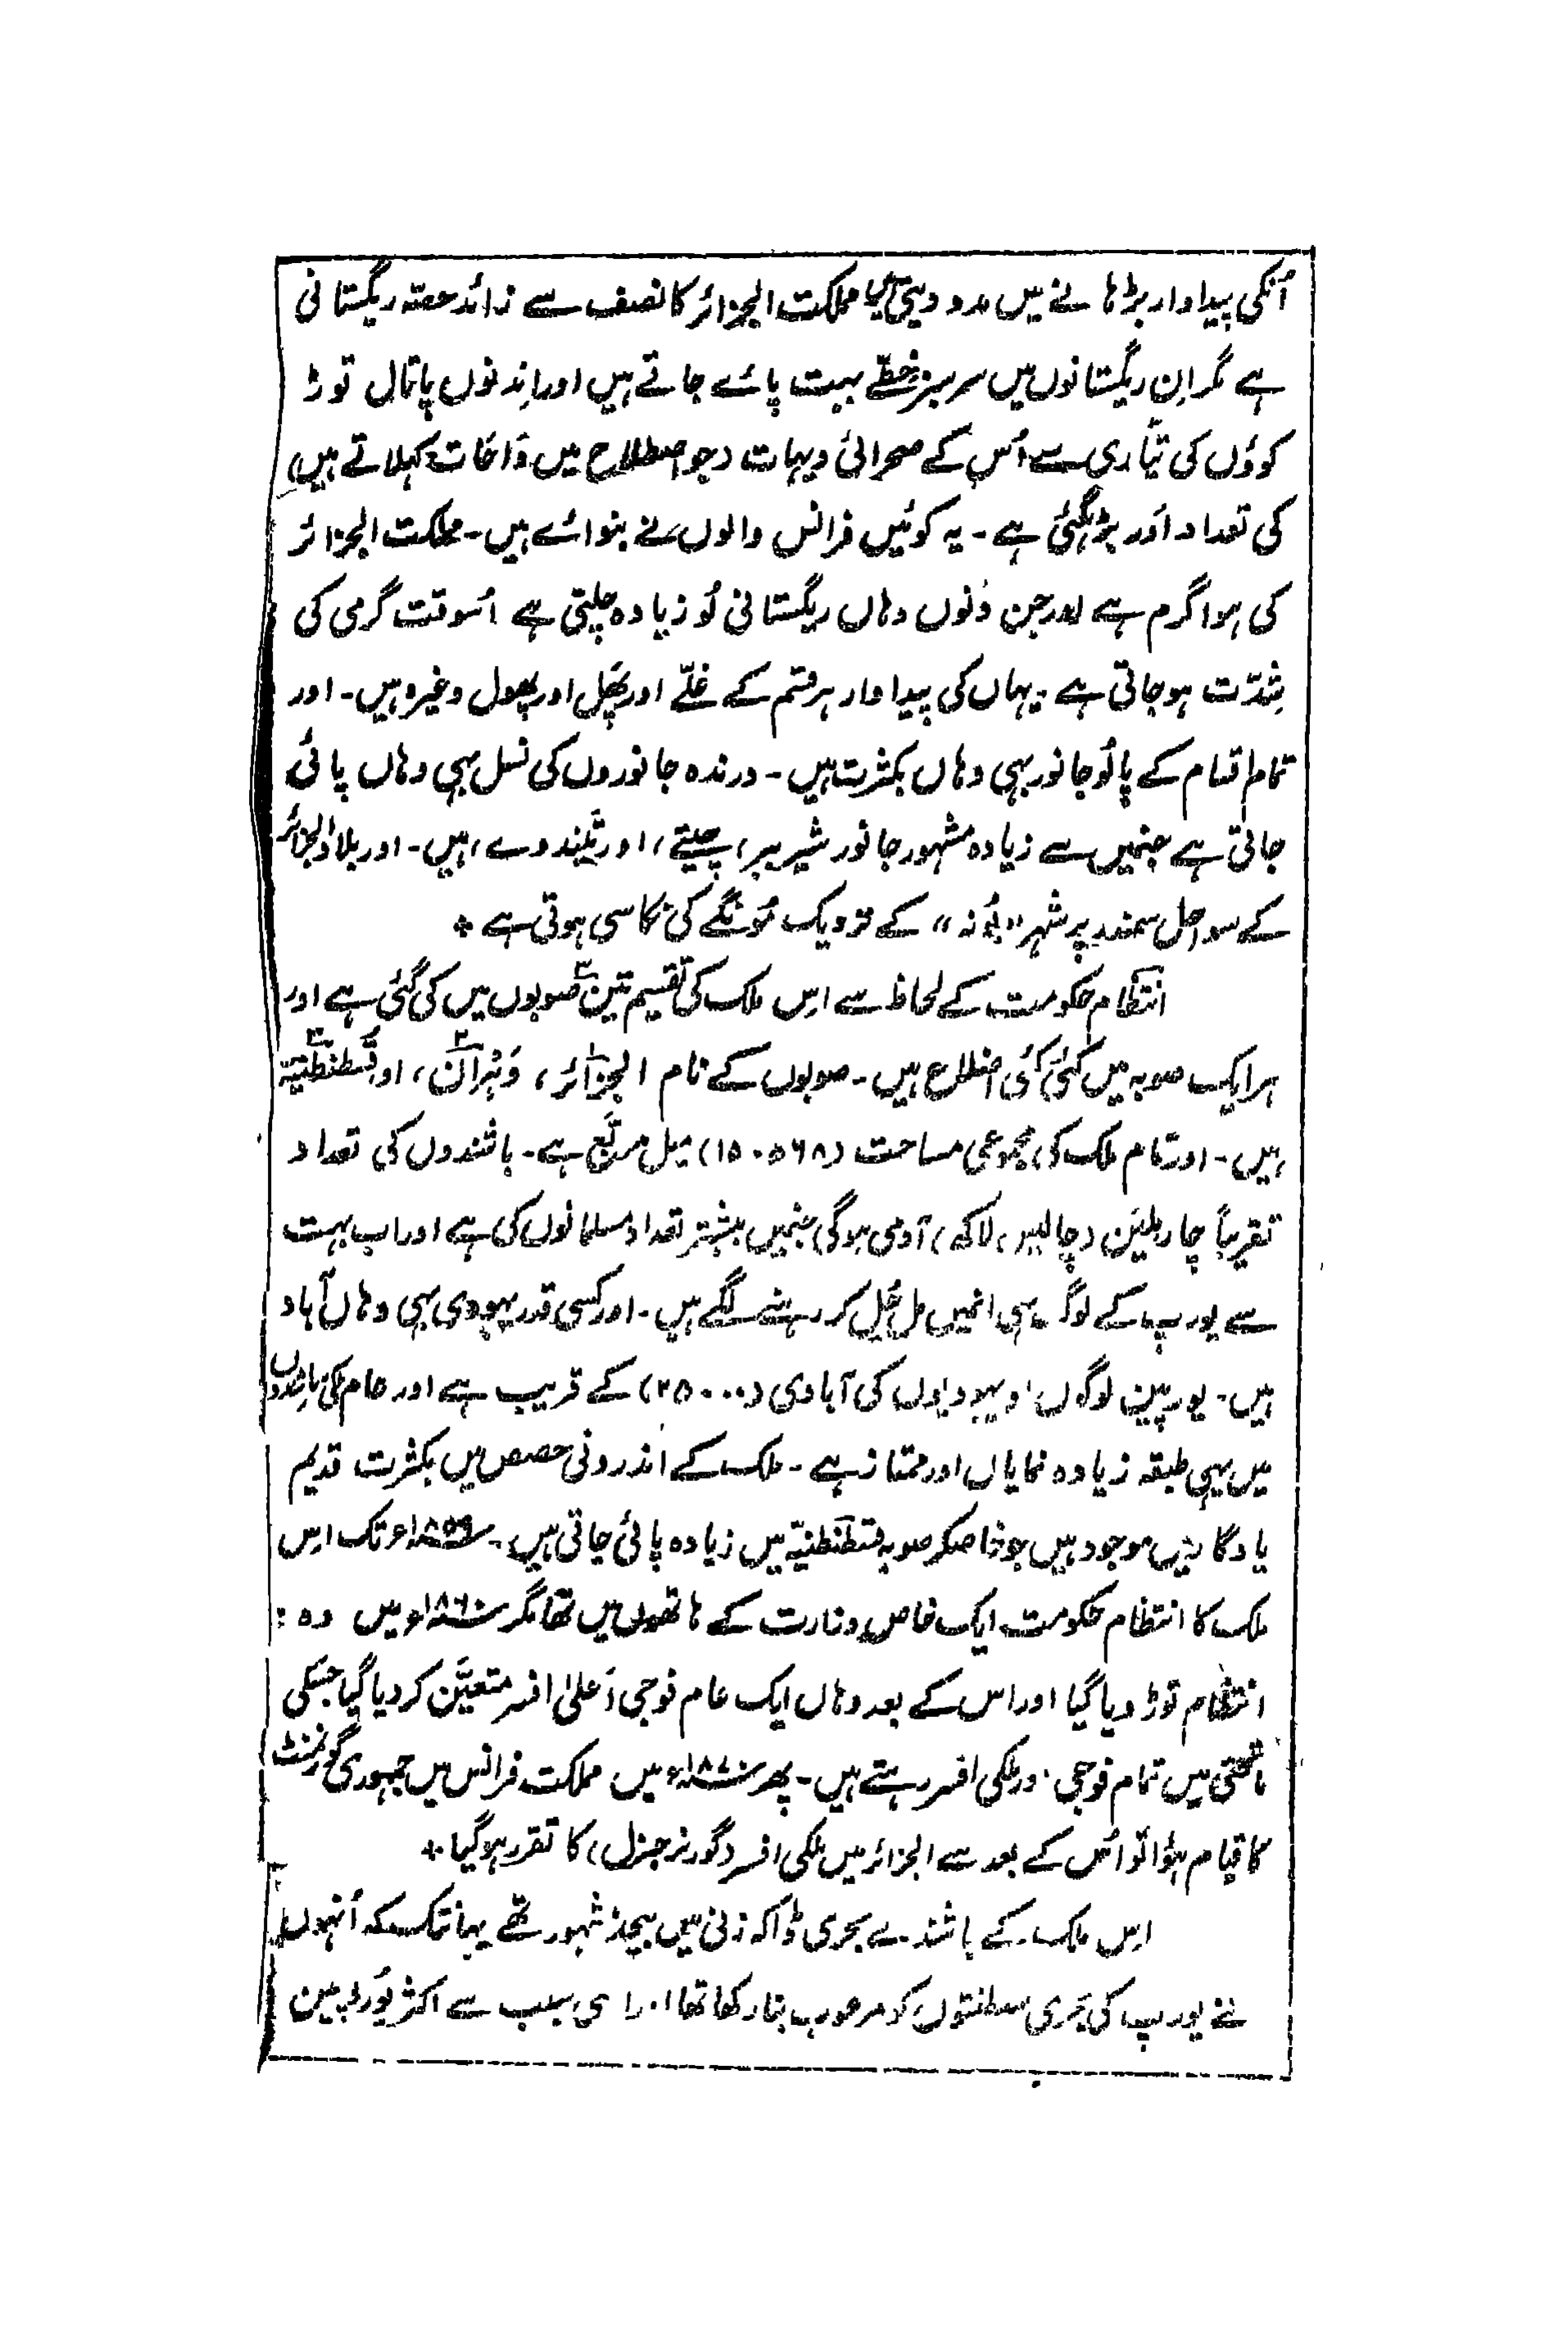 اُنکی پیداوار بڑہانے میں مدد دیتی ہیں مملکت الجزائر کا نصف سے زائد حصّہ ریگستانی
ہے مگر اِن ریگستانوں میں سرسبز خطّے بہت پائے جاتے ہیں اور اِندنوں پاتال توڑ
کوؤں کی تیّاری سے اُس کے صحرائی دیہات (جو اصطلاح میں وَاحَات کہلاتے ہیں)
کی تعداد اَور بڑہگئی ہے۔ یہ کوئیں فرانس والوں نے بنوائے ہیں۔ مملکت الجزائر
کی ہوا گرم ہے اور جن دِنوں وہاں ریگستانی لُو زیادہ چلتی ہے اُسوقت گرمی کی
شِدّت ہوجاتی ہے۔ یہاں کی پیداوار ہر قسم کے غلّے اور پَھل اور پھول وغیرہ ہیں۔ اور
تمام اقسام کے پالُو جانور بہی وہاں بکثرت ہیں۔ درندہ جانوروں کی نسل بہی وہاں پائی
جاتی ہے جنمیں سے زیادہ مشہور جانور شیر ببر، چیتے، اور تیندوے، ہیں۔ اور بلاد الجزائر
کے سواحل سمندر پر شہر "بُونہ" کے نزدیک مُونگے کی نکاسی ہوتی ہے *
انتظام حکومت کے لحاظ سے اِس ملک کی تقسیم تین ۳ صوبوں میں کی گئی ہے اور
ہر ایک صوبہ میں کئی کئی اضلاع ہیں۔ صوبوں کے نام الجزائر ۱، وَہران ۲، اور قسطنطنیّہ ۳
ہیں۔ اور تمام ملک کی مجموعی مساحت (۱۵۰۵۶۸) میل مربّع ہے۔ باشندوں کی تعداد
تقریباً چار ملین (چالیس لاکہ) آدمی ہوگی جنمیں بیشتر تعداد مسلمانوں کی ہے اور اب بہت
سے یورپ کے لوگ بہی انمیں مل جُل کر رہنے لگے ہیں۔ اور کسی قدر یہودی بہی وہاں آباد
ہیں۔ یورپین لوگوں اور یہودیوں کی آبادی (۲۵۰۰۰) کے قریب ہے اور عام ملکی باشندوں
میں یہی طبقہ زیادہ نمایاں اور ممتاز ہے۔ ملک کے اندرونی حصص میں بکثرت قدیم
یادگاریں موجود ہیں جو خاصکر صوبہ قسطنطنیّہ میں زیادہ پائی جاتی ہیں۔ ۱۸۵۹ء تک اِس
ملک کا انتظام حکومت ایک خاص وزارت کے ہاتھوں میں تھا مگر ۱۸۶۰ء میں وہ
انتظام توڑ دیا گیا اور اس کے بعد وہاں ایک عام فوجی اَعلیٰ افسر متعیَّن کر دیا گیا جسکی
ماتحتی میں تمام فوجی اور ملکی افسر رہتے ہیں۔ پھر ۱۸۷۰ء میں مملکت فرانس میں جمہوری گورنمنٹ
کا قیام ہؤا تو اُس کے بعد سے الجزائر میں ملکی افسر (گورنر جنرل) کا تقرر ہوگیا *
اِس ملک کے باشندے بحری ڈاکہ زنی میں بیحد مشہور تھے یہانتک کہ اُنہوں
نے یورپ کی بَحری سلطنتوں کو مرعوب بنا رکھا تھا اور اسی سبب سے اکثر یُورپین